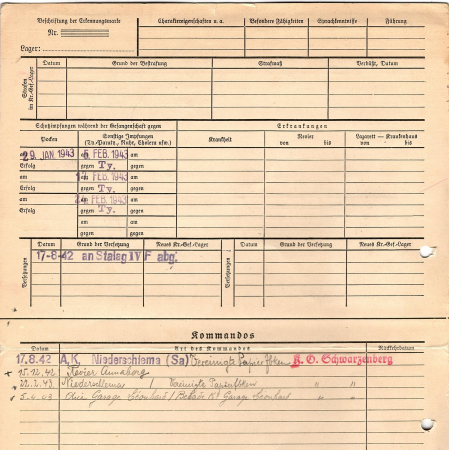 Beschriftung der Erkennungsmarke
Nr.
Lager:
Charaktereigenschaften u. a.
Besondere Fähigkeiten
Sprachkenntnisse
Führung
Strafen im Kr.-Gef.-Lager
Datum
Grund der Bestrafung
Strafmaß
Verbüßt, Datum
Schutzimpfungen während der Gefangenschaft gegen
Erkrankungen
Pocken
Sonstige Impfungen
(Ty.-Paraty., Ruhr, Cholera usw.)
Krankheit
Revier
von bis
Lazarett — Krankenhaus
von bis
29. JAN. 1943 am 5. FEB. 1943
Erfolg gegen Ty.
am am FEB. 1943
Erfolg gegen Ty.
am am FEB. 1943
Erfolg gegen Ty.
am am
gegen gegen
Versetzungen
Datum Grund der Versetzung Neues Kr.-Gef.-Lager
Versetzungen
Datum Grund der Versetzung Neues Kr.-Gef.-Lager
17-8-42 an Stalag IV F abg.
Kommandos
Datum Art des Kommandos Rückkehrdatum
17.8.42 A.K. Niederschlema (Sa) Vereinigte Papier A. O. Schwarzenberg
15.12.42 Revier Annaberg
22.2.43 / " "
5.4.43 Garage Leonhart / Garage Leonhart " "